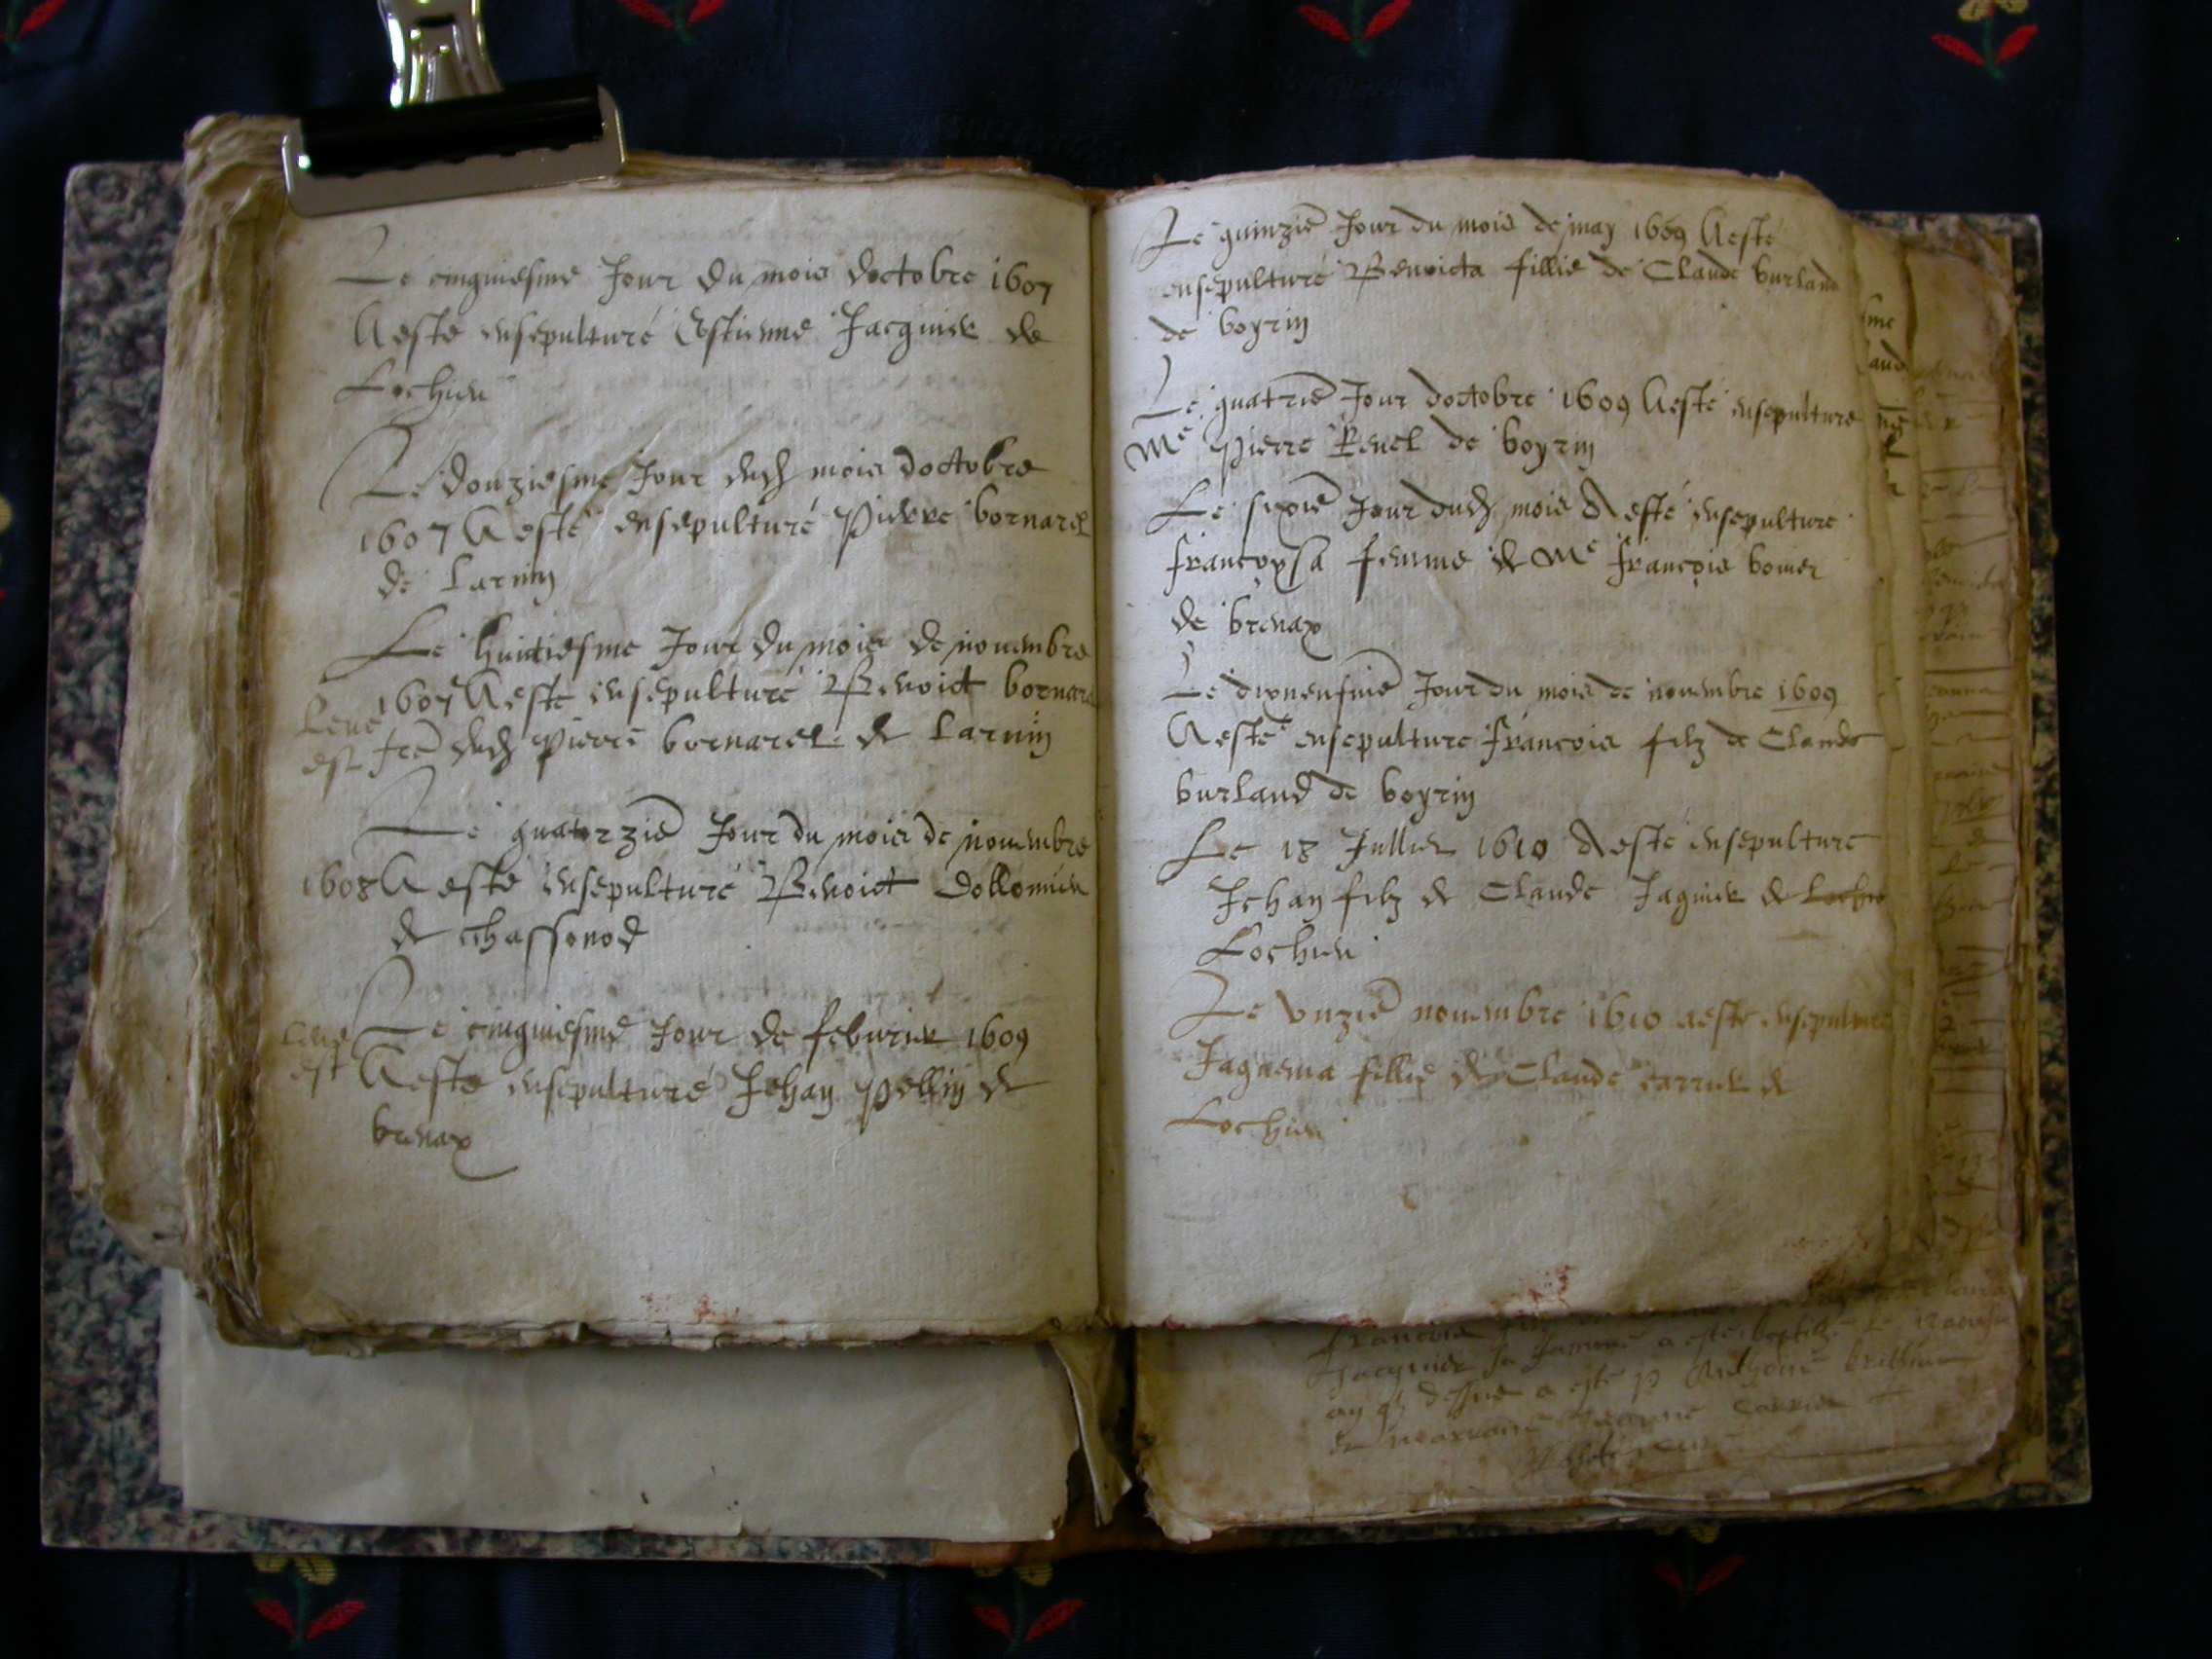 Le cinquiesme Jour du mois doctobre 1607
A esté ensepulturé Estienne Jacquier de
Lochieu
Le douziesme Jour dud mois doctobre
1607 A esté ensepulturé Pierre bornarel
de Larnin
Le huictiesme Jour du mois de nouembre
1607 A esté ensepulturé Benoict bornarel
Leue est
frē dud pierre bornarel de Larnin
Le quatorziē Jour du mois de nouembre
1608 A esté ensepulturé Benoict Dollomieu
de chassonod
Le cinquiesme Jour de feburier 1609
Leue est
A esté ensepulturé Jehan Pellin de
brenax
Le quinziē Jour du mois de may 1609 A esté
ensepulturé Benoicta fillie de Claude burland
de boyrin
Le quatriē Jour doctobre 1609 A esté ensepulturé
Me pierre Reuel de boyrin
Le sixiē Jour dud mois A esté ensepulturé
francoysa femme de Me francois
de brenax
Le dixneufuiē Jour du mois de nouembre 1609
A esté ensepulturé francois filz de Claude
burland de boyrin
Le 18 Jullier 1610 A esté ensepulturé
Jehan filz de Claude Jaquier de
Lochieu
Le vnziē nouembre 1610 a esté ensepulturé
Jaquema fillie de Claude carrier de
Lochieu
francois
Jacquier sa femme a esté baptizé le
an q dessus a esté p Anthoine
de Jeanne carrier